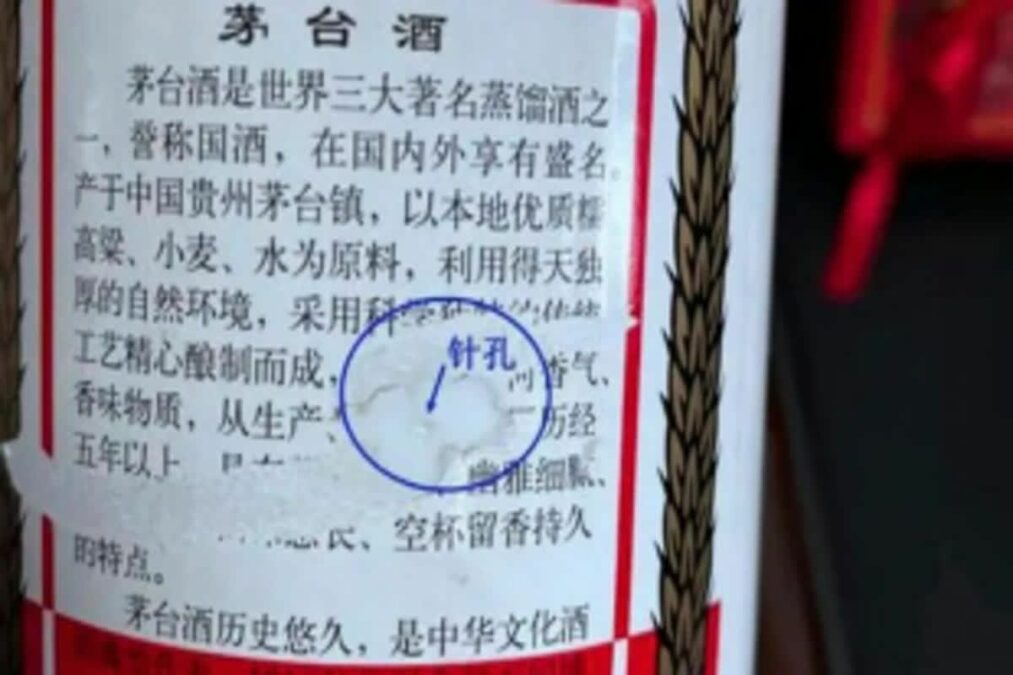 茅台酒
茅台酒是世界三大著名蒸馏酒之
一，誉称国酒，在国内外享有盛名。
产于中国贵州茅台镇，以本地优质糯
高粱、小麦、水为原料，利用得天独
厚的自然环境，采用科学
工艺精心酿制而成， 香气、
针孔
香味物质，从生产、 历经
五年以上 幽雅细腻、
空杯留香持久
的特点。
茅台酒历史悠久，是中华文化酒